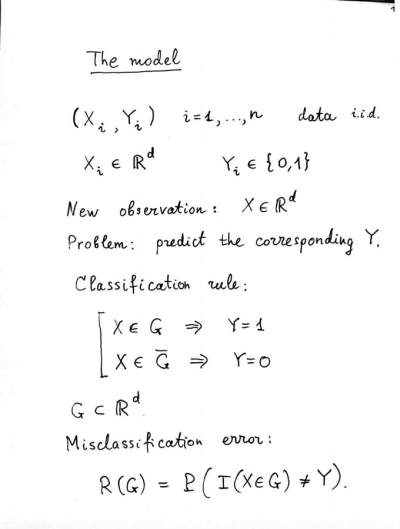 1
The model
(X_i, Y_i) i=1,...,n data i.i.d.
X_i ∈ ℝ^d Y_i ∈ {0,1}
New observation: X ∈ ℝ^d
Problem: predict the corresponding Y.
Classification rule:
X ∈ G ⇒ Y=1
X ∈ G̅ ⇒ Y=0
G ⊂ ℝ^d.
Misclassification error:
R(G) = P(I(X∈G) ≠ Y).